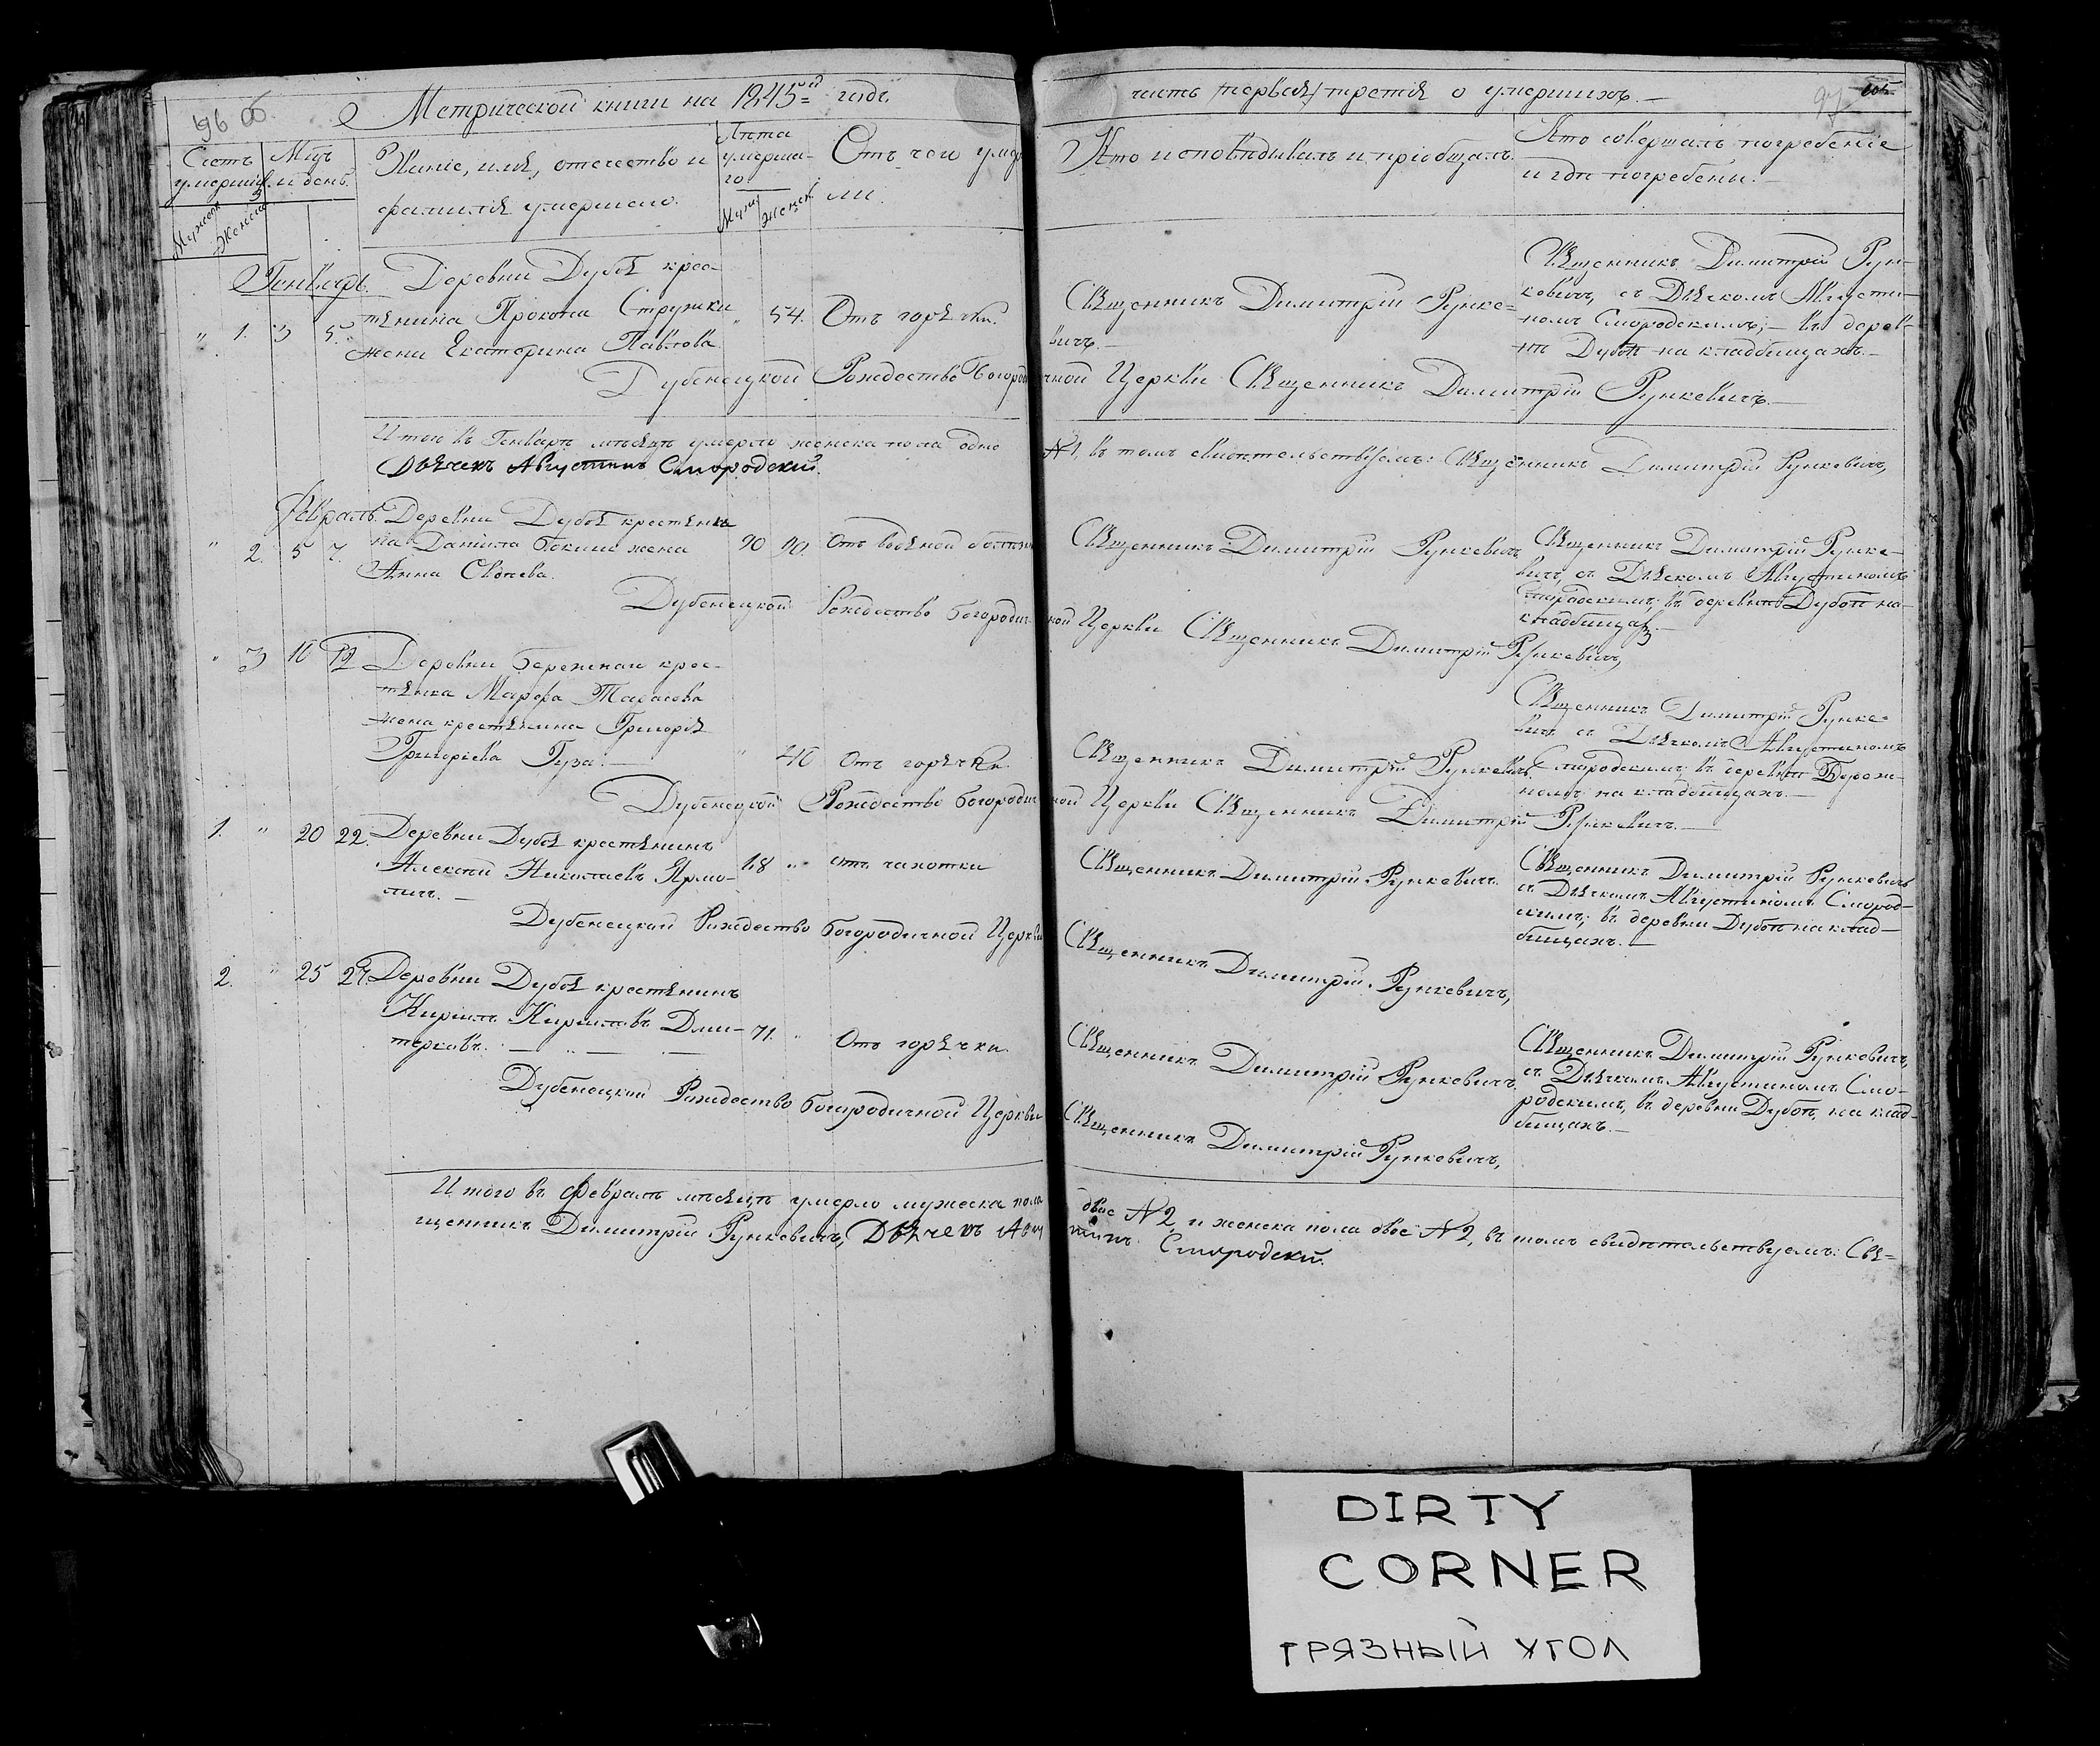 96 об.
Метрической книги на 1845-й годъ
часть /первая/ третія о умершихъ. —
97 605
Счетъ умершихъ
Мѣц. и день.
Мужеска
Женска
Званіе, имя, отечество и
фамилія умершаго.
Лѣта
умерша-
го
Муж.
Женск.
Отъ чего умер
ли.
Кто исповѣдывалъ и пріобщалъ.
Кто совершалъ погребеніе
и гдѣ погребены. —
Генварь.
Деревни Дубоя крес-
„ 1. 3 5. тянина Прокопа Стружки
жена Екатерина Павлова.
„ 54. Отъ горячки.
Священникъ Димитрій Рунке-
вичъ. —
Священникъ Димитрій Рун-
кевичъ, съ Дьячкомъ Августи-
номъ Смородскимъ; — въ дерев-
нѣ Дубоѣ на кладбищахъ. —
Дубенецкой Рождество Богородичной Церкви Священникъ Димитрій Рункевичъ. —
Итого въ Генварѣ мѣсяцѣ умерло женска пола одно №1, въ томъ свидѣтельствуемъ: Священникъ Димитрій Рункевичъ,
Дьячекъ Августинъ Смородский.
Февраль.
Деревни Дубоя крестьяни
„ 2. 5 7. на Данила жена
Анна
90 90. Отъ водяной болѣзни
Священникъ Димитрій Рункевичъ
Священникъ Димитрій Рунке-
вичъ, съ Дьячкомъ Августиномъ
Смородскимъ; въ деревнѣ Дубоѣ на
кладбищах. —
Дубенецкой Рождество Богородичной Церкви Священникъ Димитрій Рункевичъ,
„ 3 10 12 Деревни Бережной крес-
тьянка Марфа Тарасова
жена крестьянина Григорія
Григоріева Гуза. —
„ 40 Отъ горячки.
Священникъ Димитрій Рункевичъ.
Священникъ Димитрій Рунке-
вичъ съ Дьячкомъ Августиномъ
Смородскимъ; въ деревнѣ Береж-
номъ на кладбищахъ. —
Дубенецкой Рождество Богородичной Церкви Священникъ Димитрій Рункевичъ. —
1. „ 20 22. Деревни Дубоя крестьянинъ
Алексѣй Николаевъ Ярмо-
личъ. —
18 „ отъ чахотки
Священникъ Димитрій Рункевичъ.
Священникъ Димитрій Рункевичъ
съ Дьячкомъ Августиномъ Смород-
скимъ; въ деревни Дубоѣ на клад-
бищахъ. —
Дубенецкой Рождество Богородичной Церкви Священникъ Димитрій Рункевичъ,
2. „ 25 27. Деревни Дубоя крестьянинъ
Кирилъ Кириловъ Дми-
терковъ. —
71. „ Отъ горячки.
Священникъ Димитрій Рункевичъ.
Священникъ Димитрій Рункевичъ,
съ Дьячкомъ Августиномъ Смо-
родскимъ, въ деревни Дубоѣ, на клад-
бищахъ. —
Дубенецкой Рождество Богородичной Церкви Священникъ Димитрій Рункевичъ,
Итого въ Февралѣ мѣсяцѣ умерло мужеска пола двое №2, и женска пола двое №2, въ томъ свидѣтельствуемъ: Свя=
щенникъ Димитрій Рункевичъ, Дьячекъ Августинъ Смородский.
DIRTY
CORNER
ГРЯЗНЫЙ УГОЛ